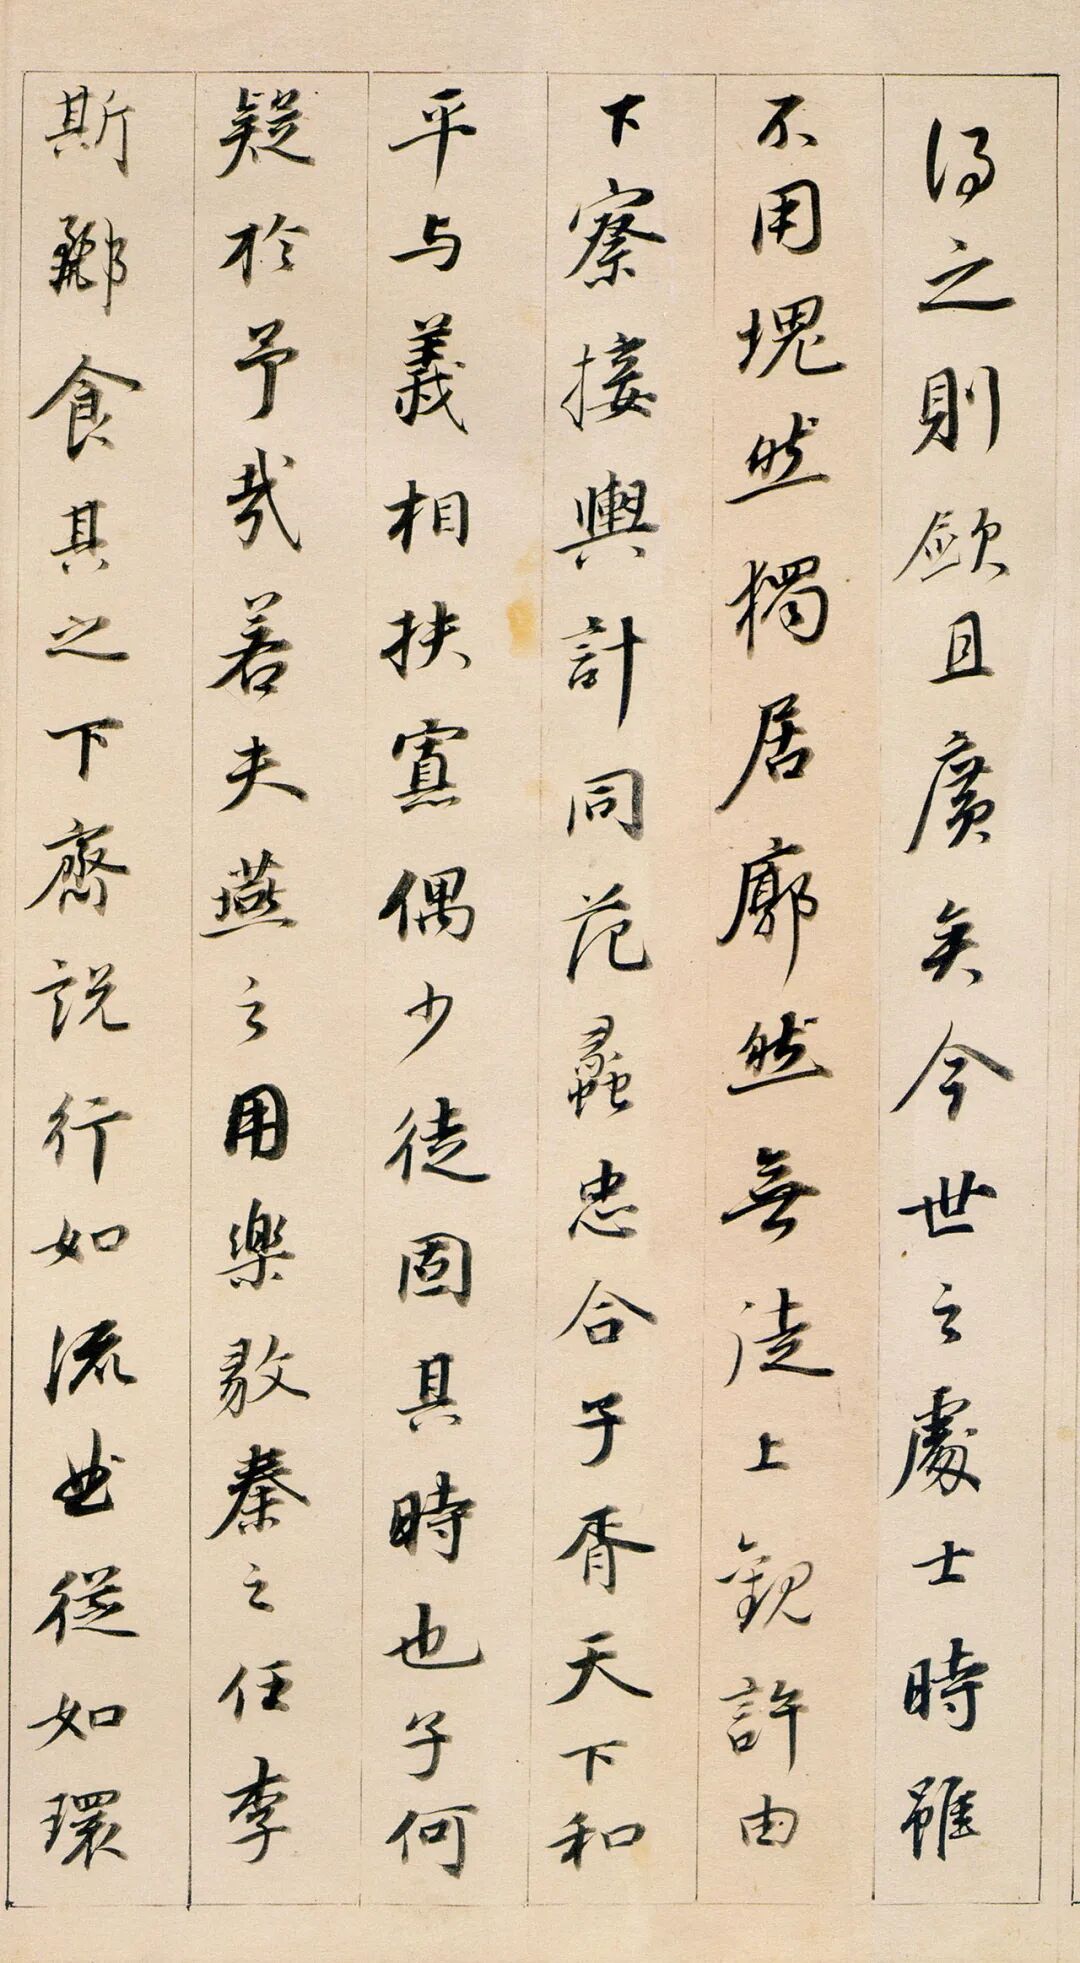 得之則欿且廣矣今世之處士時雖
不用塊然獨居廓然無徒上觀許由
下察接輿計同范蠡忠合子胥天下和
平与義相扶寡偶少徒固其時也子何
疑於予哉若夫燕之用樂毅秦之任李
斯酈食其之下齊說行如流曲從如環